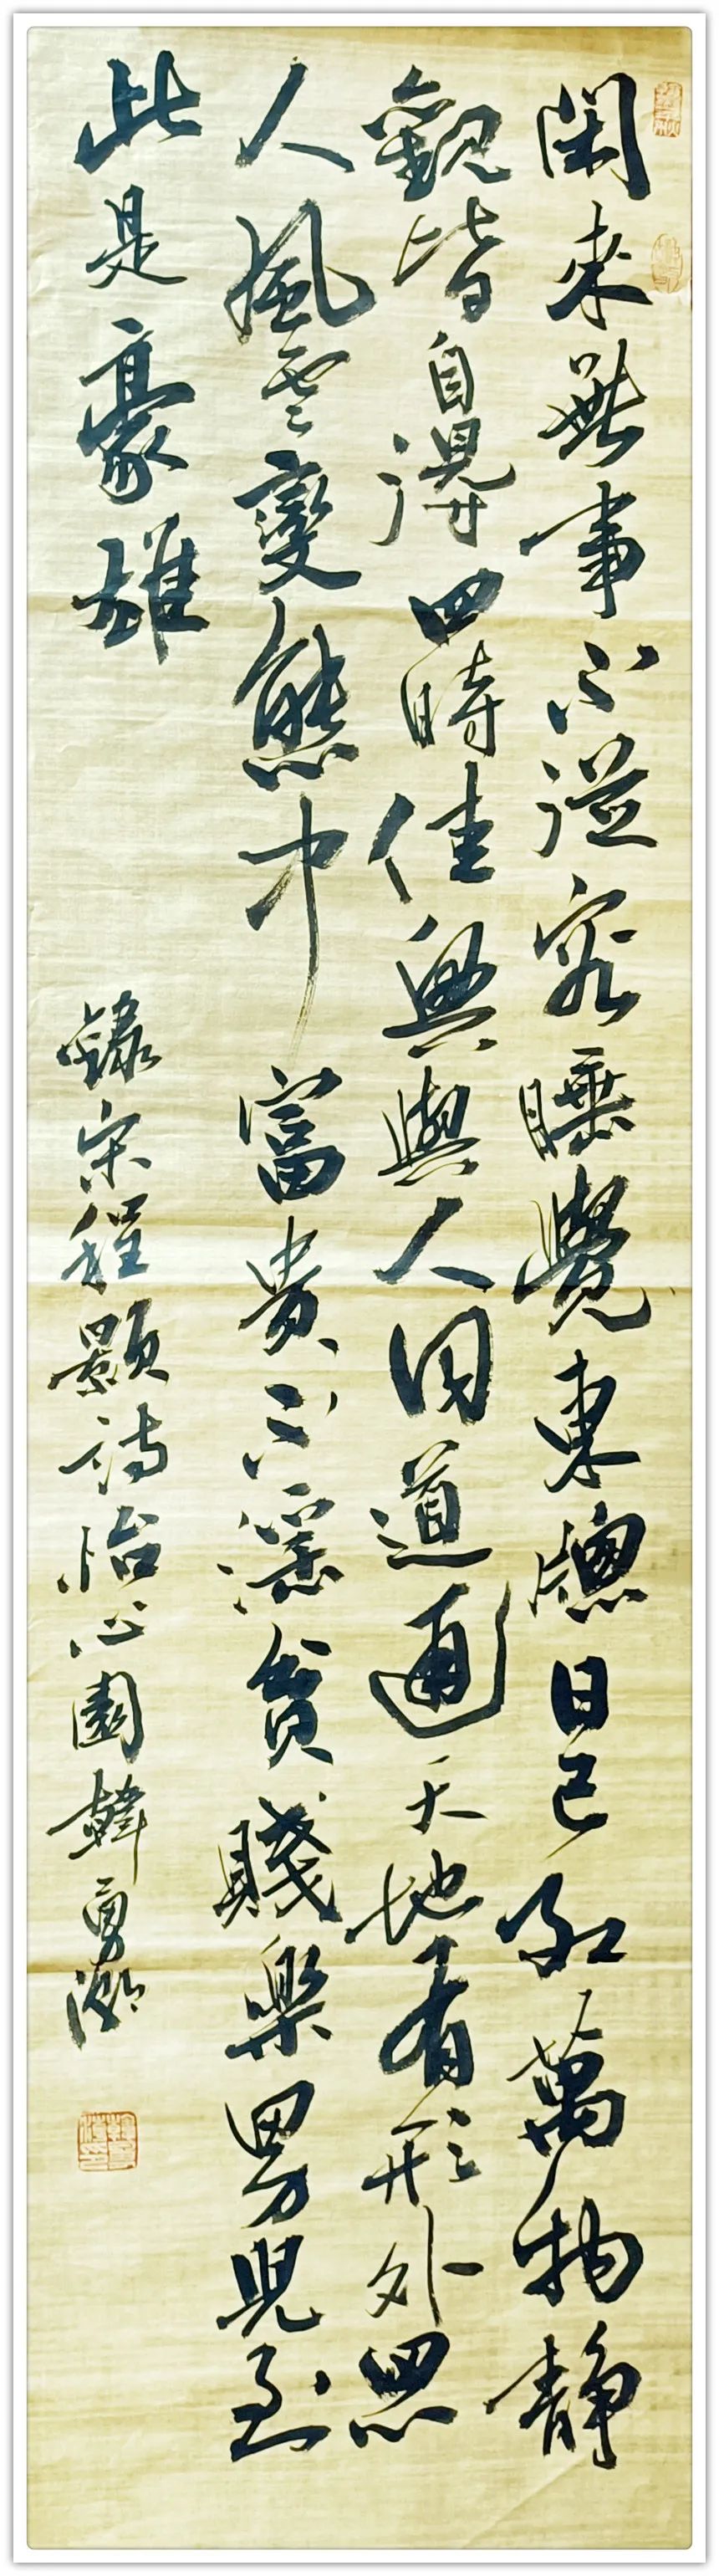 閑来無事不從容睡覺東牕日已紅萬物静
觀皆自得四時佳興與人同道通天地有形外思
入風雲變態中富貴不淫貧賤樂男兒到
此是豪雄
錄宋程顥詩怡心園韓勇